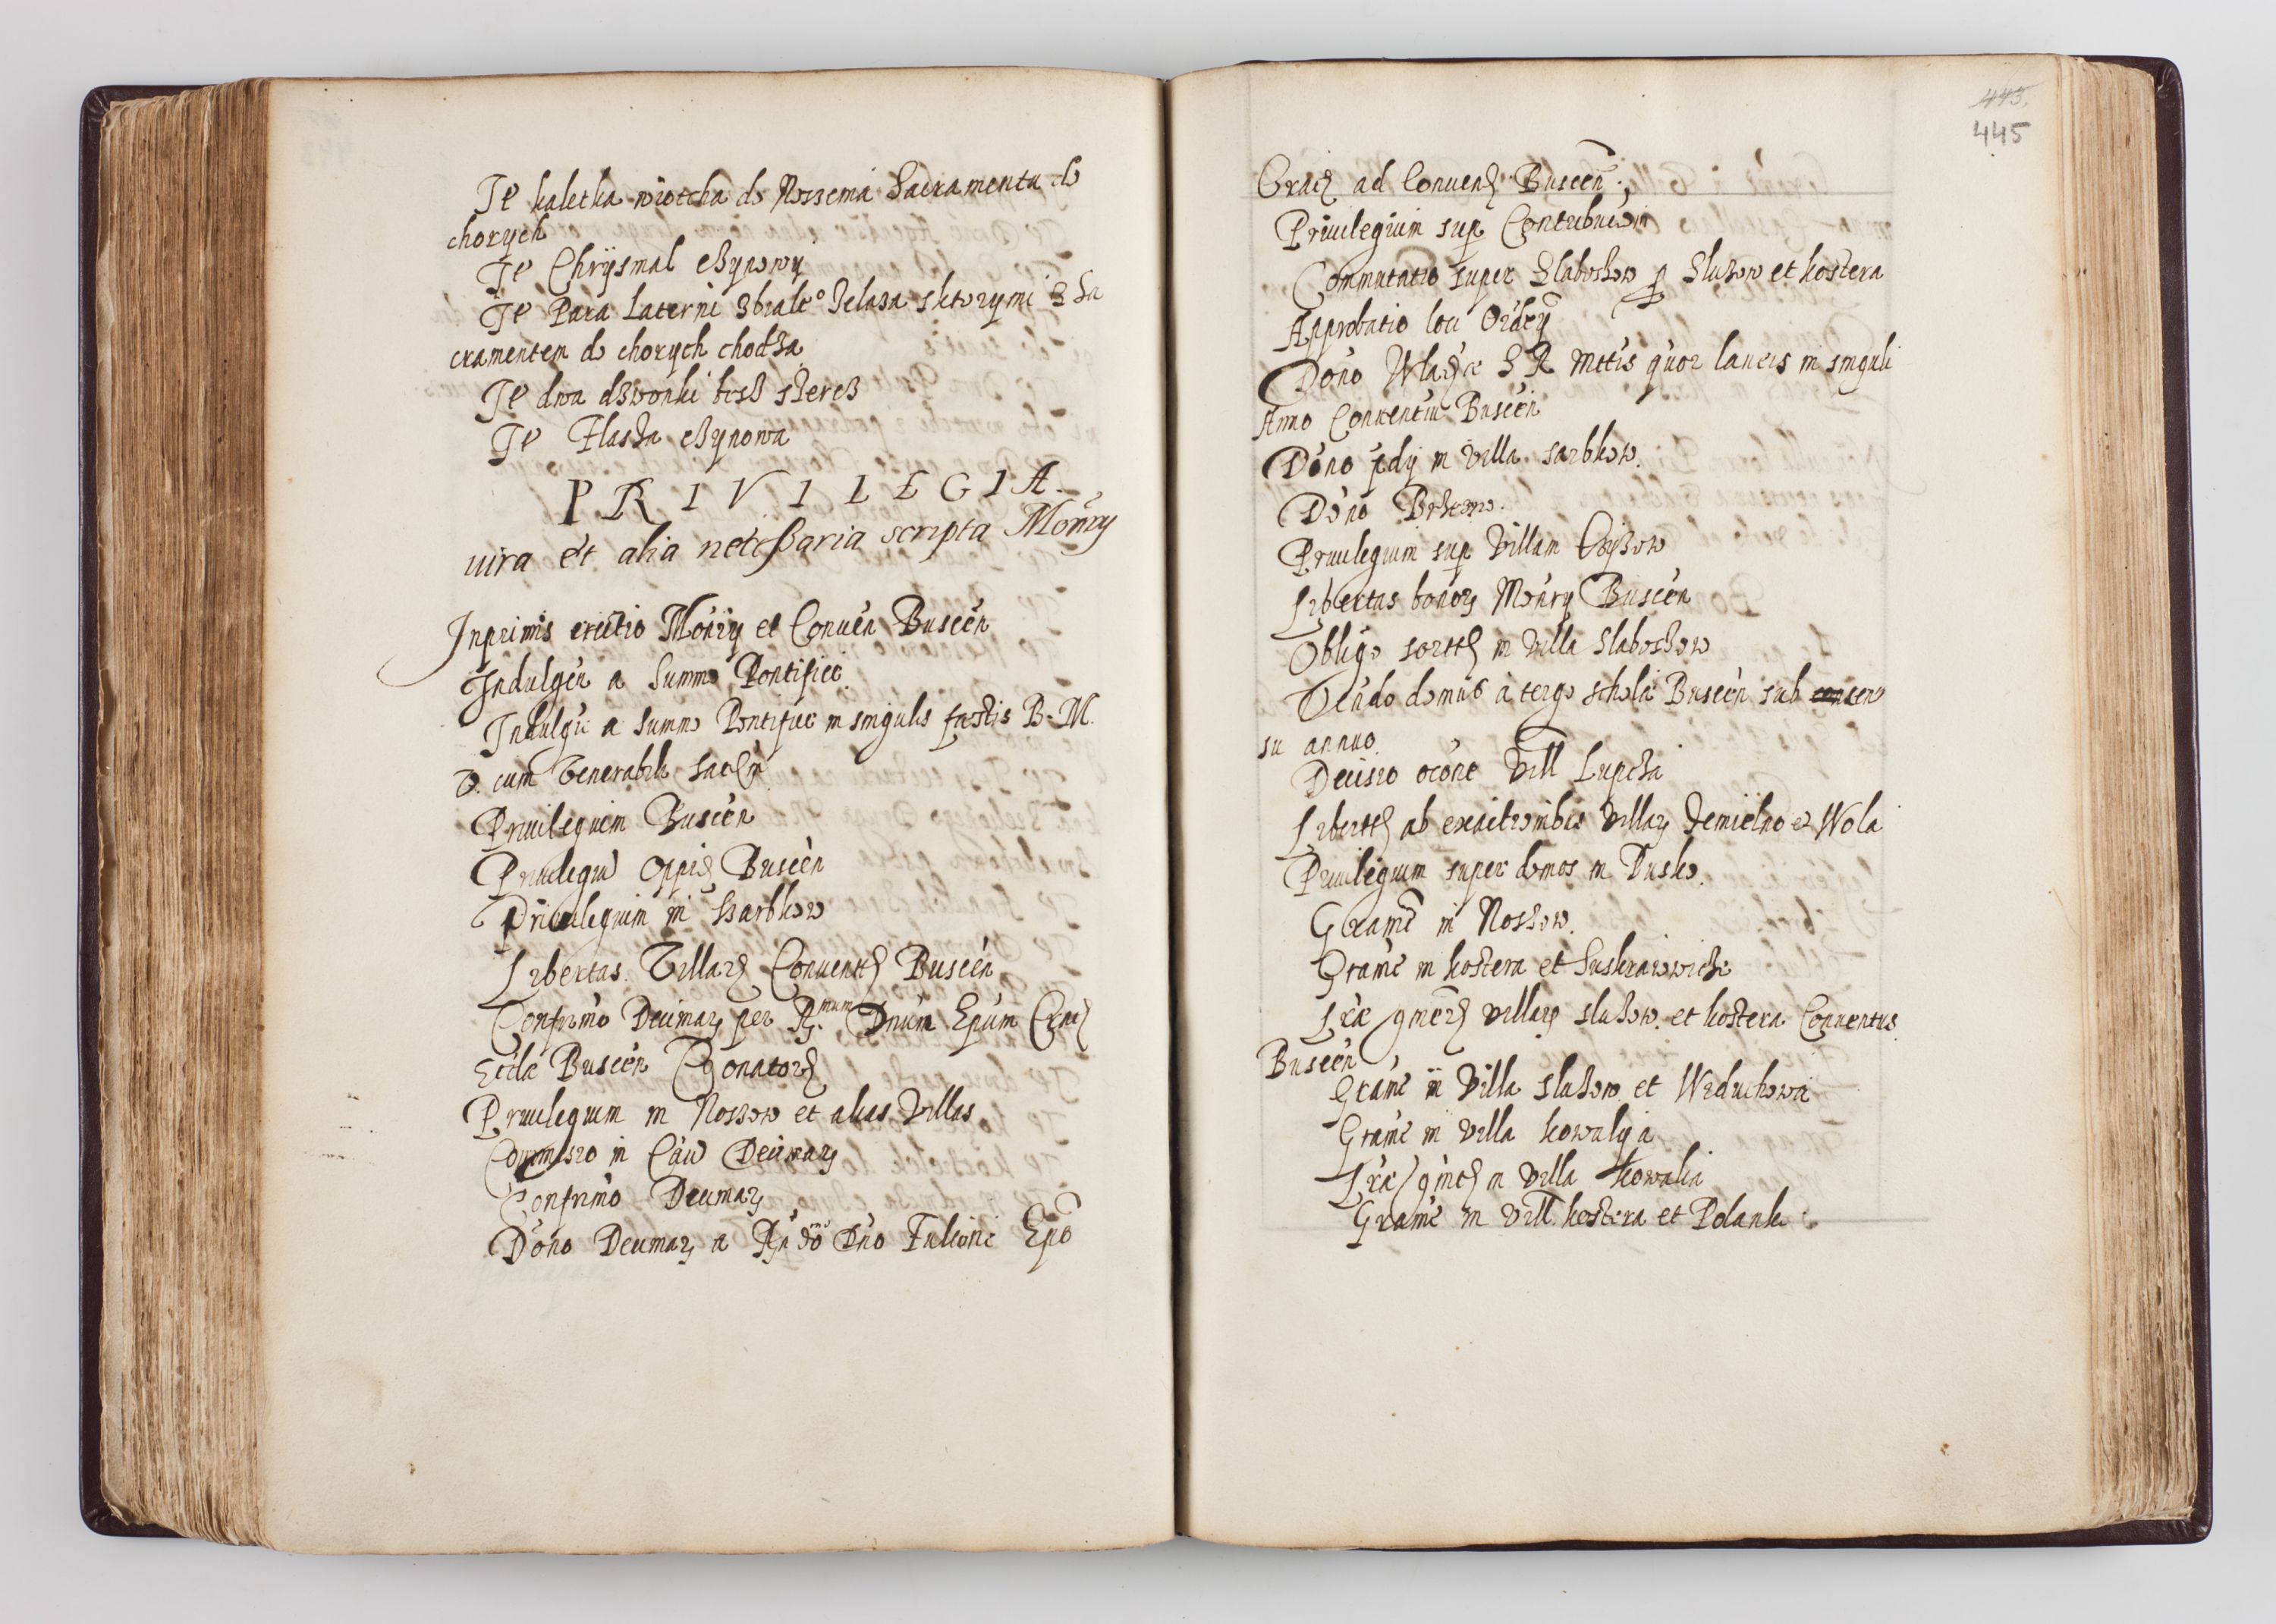 Ite kaletka wiotcha do Nossenia Sacramentu do
chorych
Ite Chrysmal czynowy
Ite Para laterni zbiałeº Zelaza sktorymi z Sa
cramentem do chorych chodza
Ite dwa dzwonki
Ite Flasza czynowa
PRIVILEGIA.
et alia necessaria scripta Monrÿ
Inprimis erectio Monrÿ et Conuen Buscen
Indulgen a Summo Pontifici
Indulgu a Summo Pontifice in singulis festis B. M.
V. cum Venerabili Sacrm
Priuilegium Buscen
Priuilegiu Oppid Buscen
Priuilegium in Szarbkow
Libertas Villarz Conuentz Buscen
Confirmo Decimarz per Rmum Dnum Epum Crac
Ecclae Buscen Donatorz
Priuilegium in Noszow et alias Villas
Commisio in Cau Decimarz
Confirmo Decimarz
Dono Decimarz a Rndo Dno Fulconi Epo
443.
445
Cracz ad Conuenz Buscen.
Priuilegium sup Contubniom
Commutatio super Slaboszow p Sluszow et kostera
Approbatio loci Ordey
Dono Wladÿ S R Mttis quor lancis in singuli
Anno Conuentui Buscen
Dono pdÿ in Villa sarbkow.
Dono
Priuilegium sup Villam
Libertas bonorz Monrÿ Buscen
Obligo sortz in Villa Slaboszow
Vendo domus a tergo schola Buscen sub cen
su annuo.
Decisio ocone Vill Lupcza
Libertz ab exactionibus Villarz Jemielno et Wola
Priuilegium super domos in Busko.
Grame in Noszow.
Grame in kostera et
Lrae gnerz Villarz Sluszow et kostera Conuentus
Buscen
Grame in Villa Sluszow et Weduchowa
Grame in Villa kowalÿa
Lrae gnetz in Villa kowalia
Grame in Vill kostera et Polanki